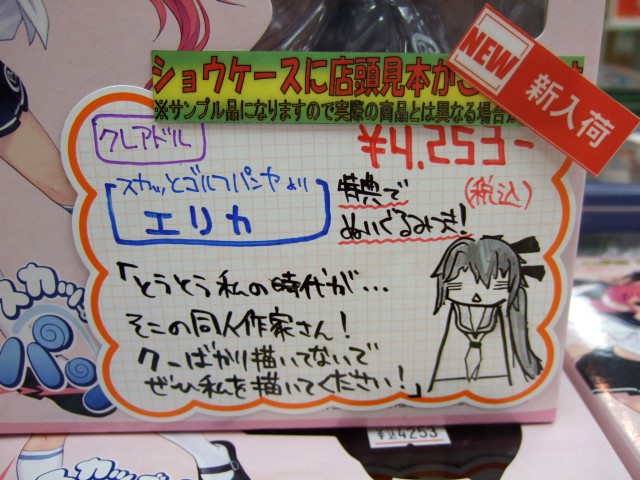 ショウケースに店頭見本が
※サンプル品になりますので実際の商品とは異なる場合が
NEW
新入荷
クレアドル
¥4.253-
(税込)
スカッとゴルフパンヤより
エリカ
特典で
ぬいぐるみつき!
「とうとう私の時代が…
そこの同人作家さん!
クーばかり描いてないで
ぜひ私を描いてください!」
スカッ
パン
スカッ
¥4253